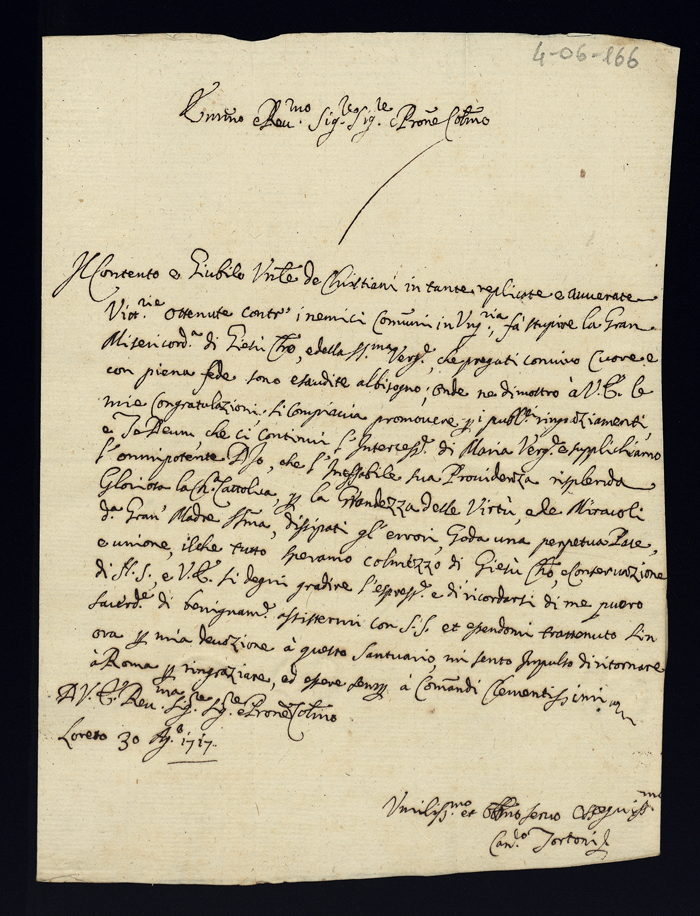 4-06-166
Em̃mo e Reu.mo Sig.re Sig.re e Prone Col̃mo
Il Contento e Giubilo Vn̄le de Christiani in tante replicate e auuerate
Vitt.rie ottenute contro i nemici Comuni in Vng.ria, fa stupire la Gran
Misericord.a di Giesù Chrõ, e della SS.ma Verg.e, che pregati con viuo Cuore e
con piena fede sono esaudite al bisogno; onde ne dimostro à V.E. le
mie Congratulazioni, si compiaccia promouere p i publ.i ringraziamenti,
e Te Deum, che ci continui l'Intercess.e di Maria Verg.e e supplichiamo
l'onnipotente Dio, che l'Ineffabile sua Prouidenza risplenda
Gloriosa la Ch.a Cattolica, p la Grandezza delle Virtù, e de Miracoli
d.a Gran Madre SSma, dissipati gl'errori, Goda una perpetua Pace,
e unione, il che tutto speramo col mezzo di Giesù Chrõ, e Conseruazione
di N.S., e V.E. si degni gradire l'espress.e e di ricordarsi di me pouero
Sacerd.e di benignam.e assistermi con S.S. et essendomi trattenuto sin
ora p mia deuozione à questo Santuario, mi sento impulso di ritornare
à Roma p ringraziare, ed essere semp à Comandi Clementissimi
D V.E. Reu.ma Sig.re Sig.re e Prone Col̃mo
Loreto 30 Ag.o 1717.
Vmiliss.mo et Obb̃mo seruo Ossequiss.mo
Can.co Tortoni